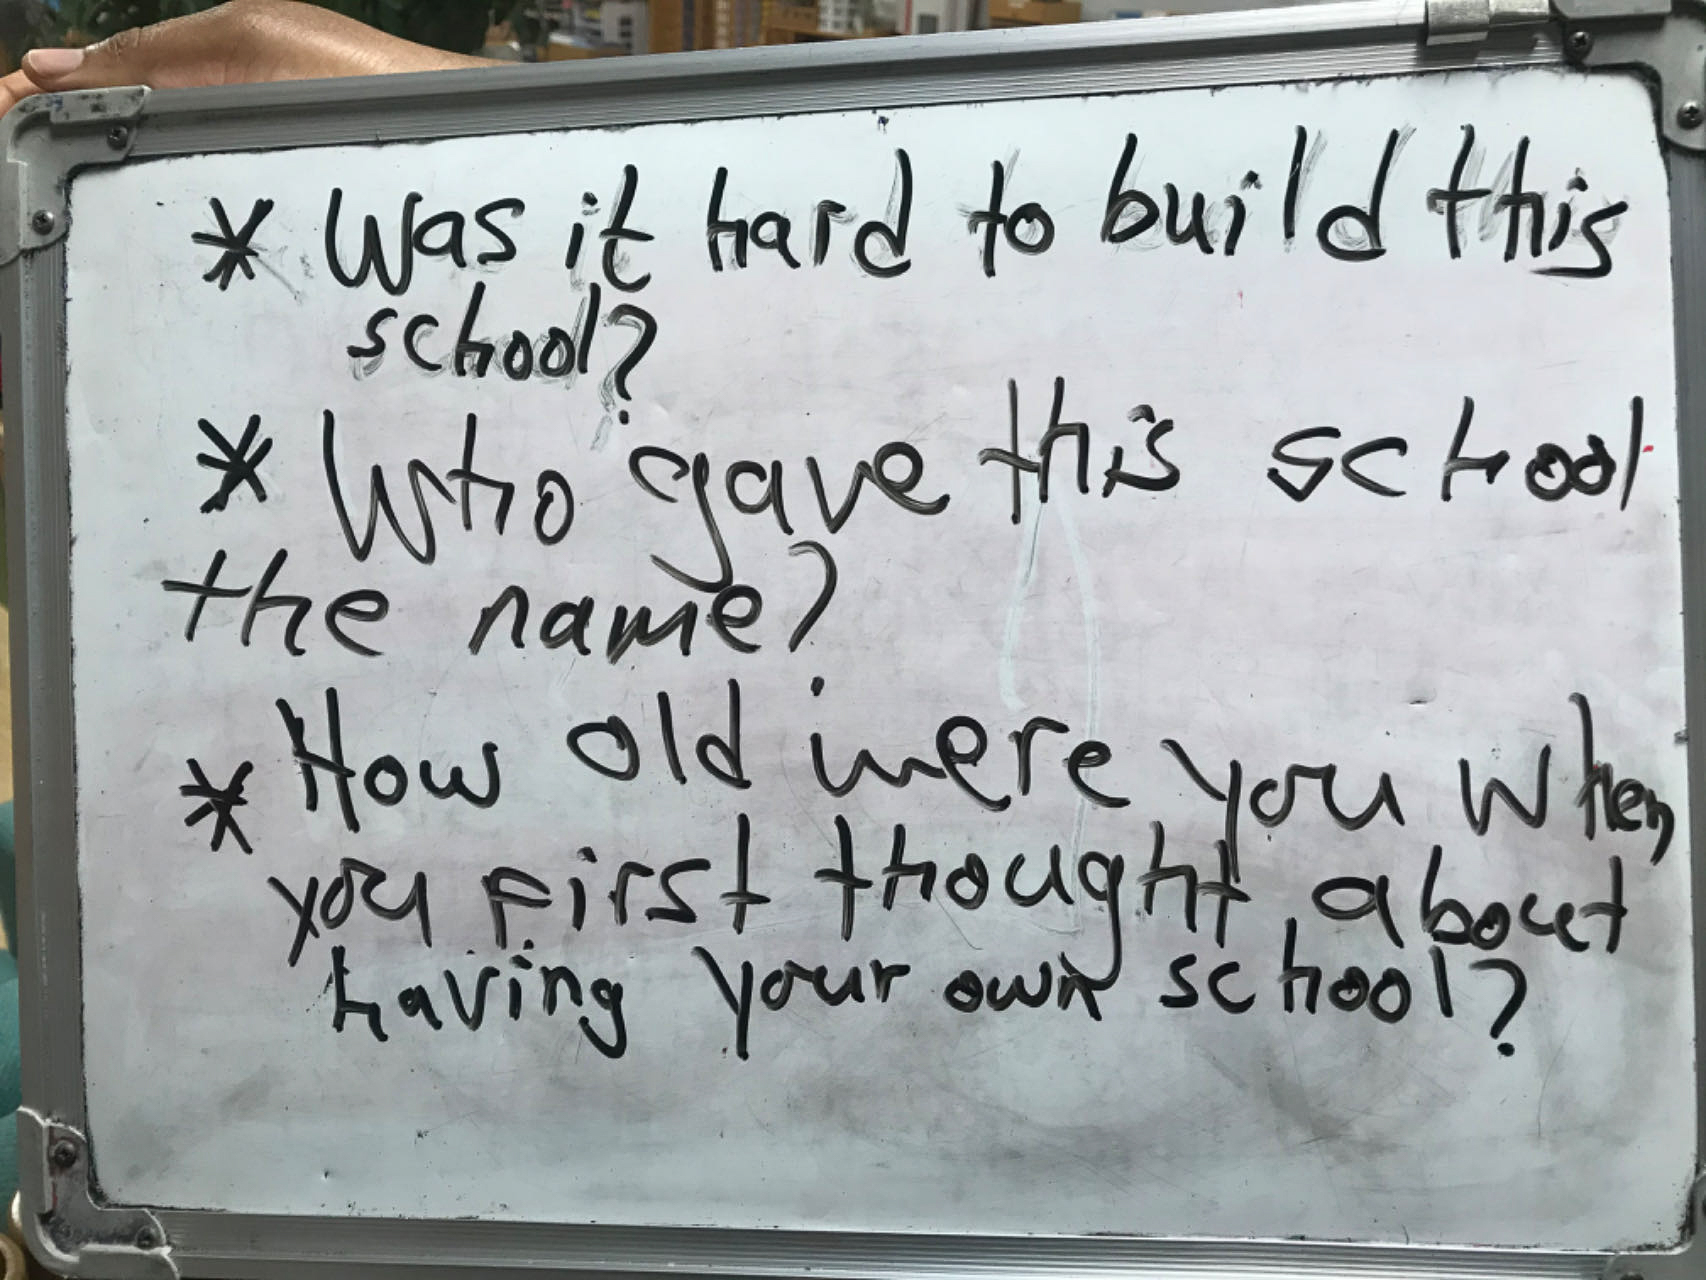 * Was it hard to build this
school?
* Who gave this school
the name?
* How old were you when
you first thought about
having your own school?